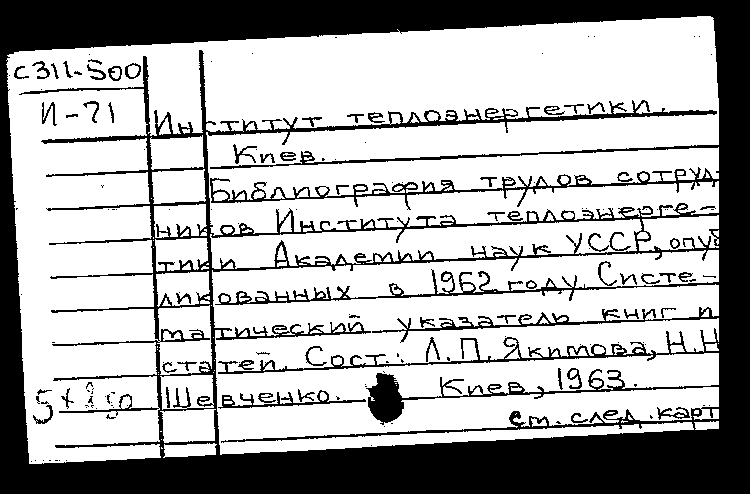 С311-500
И-71
Институт теплоэнергетики.
Киев.
Библиография трудов сотруд-
ников Института теплоэнерге-
тики Академии наук УССР, опуб
ликованных в 1962 году. Систе-
матический указатель книг и
статей. Сост.: Л.П. Якимова, Н.Н
Шевченко. Киев, 1963.
см. след. карт